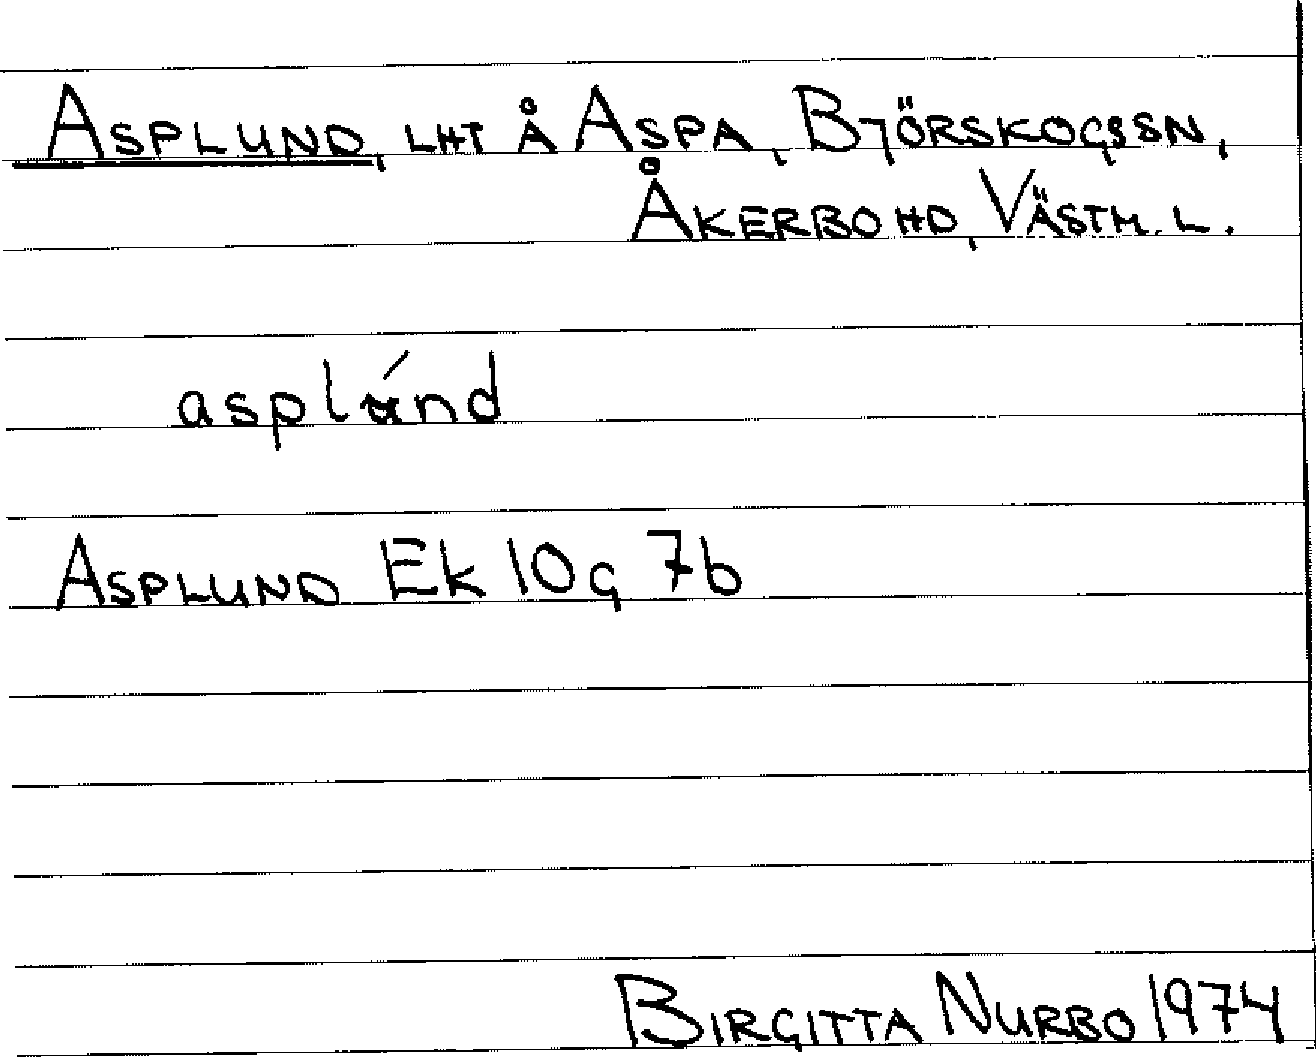 ASPLUND, LHT Å ASPA, BJÖRSKOGSSN,
ÅKERBO HD, VÄSTM. L.
asplánd
ASPLUND Ek 10g 7b
BIRGITTA NURBO 1974